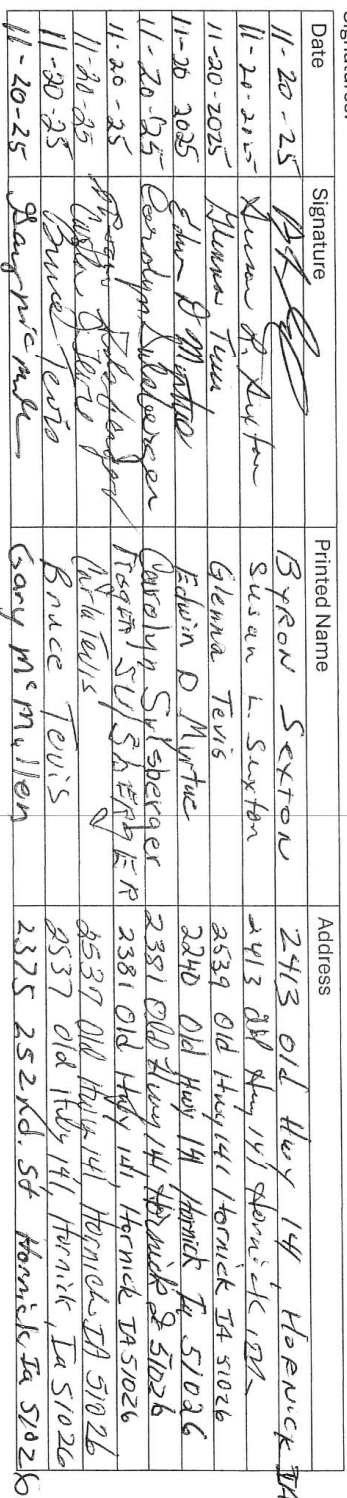 Signatures:
Date Signature Printed Name Address
11-20-25 BYRON SEXTON 2413 Old Hwy 141, HORNICK IA
11-20-2025 Susan L. Sexton Susan L. Sexton 2413 Old Hwy 141 Hornick IA
11-20-2025 Glenna Tevis Glenna Tevis 2539 Old Hwy 141 Hornick IA 51026
11-20 2025 Edwin D Mintue Edwin D Mintue 2240 Old Hwy 141 Hornick Ia 51026
11-20-25 Carolyn Sulsberger Carolyn Sulsberger 2381 Old Hwy 141 Hornick Ia 51026
11-20-25 ROGER SULSBERGER 2381 Old Hwy 141, Hornick IA 51026
11-20-25 Tevis 2537 Old Hwy 141, Hornick IA 51026
11-20-25 Bruce Tevis Bruce Tevis 2537 Old Hwy 141, Hornick, Ia 51026
11-20-25 Gary McMullen 2375 252nd. St Hornick, Ia 51026